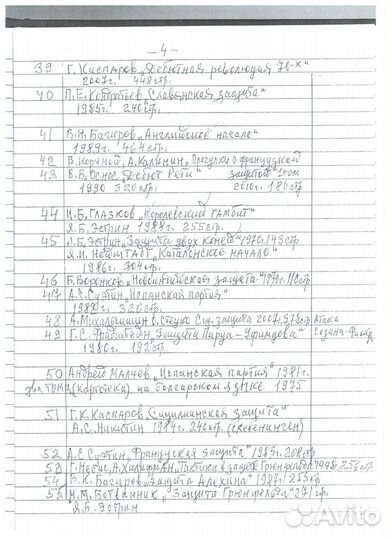 — 4 —
39 Г. Каспаров „Дебютная революция 70-х"
2007г. 448 стр.
40 П.Е. Кондратьев „Славянская защита"
1985г. 240 стр.
41 В.К. Багиров „Английское начало"
1989г. 464 стр.
42 В. Корчной, А. Калинин, „Прогулки с французской
43 В.В. Осно „Дебют Рети" защитой"
1990 320 стр. 2010г. 180 стр
44 И.Б. Глазков „Королевский гамбит"
Я.Б. Эстрин 1988г. 255 стр.
45 Я.Б. Эстрин „Защита двух коней" 1970г. 143 стр
Я.И. Нейштадт „Каталонское начало"
1986г. 304 стр.
46 Б. Воронков „Новоиндийская защита"
47 А.С. Суэтин „Испанская партия"
1982г. 320 стр.
48 А. Михальчишин, О. Стецко Сиц. защита 2007г. 575 стр Атака
49 Г.С. Фридштейн „Защита Пирца-Уфимцева" Созина-
1980г. 192 стр.
50 Андрей Малчев „Испанская партия" 1981г.
два тома (картотека) на болгарском языке 1975
51 Г.К. Каспаров „Сицилианская защита"
А.С. Никитин 1984г. 240 стр (схевенинген)
52 А.С. Суэтин „Французская защита" 1983г. 208 стр
53 Г. Несис, А. Халифман „Тактика в защите Грюнфельда" 1998г. 256 стр.
54 В.К. Багиров „Защита Алехина" 1987г. 253 стр
55 М.М. Ботвинник „Защита Грюнфельда" 271 стр.
Я.Б. Эстрин
Avito